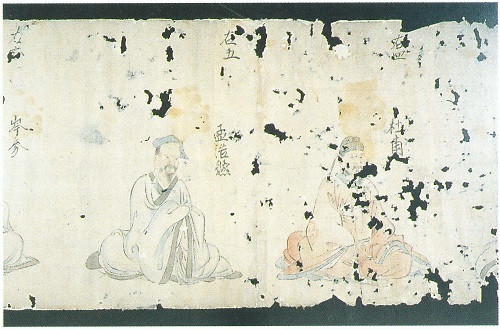 右四
杜甫
右五
孟浩然
右六
岑参